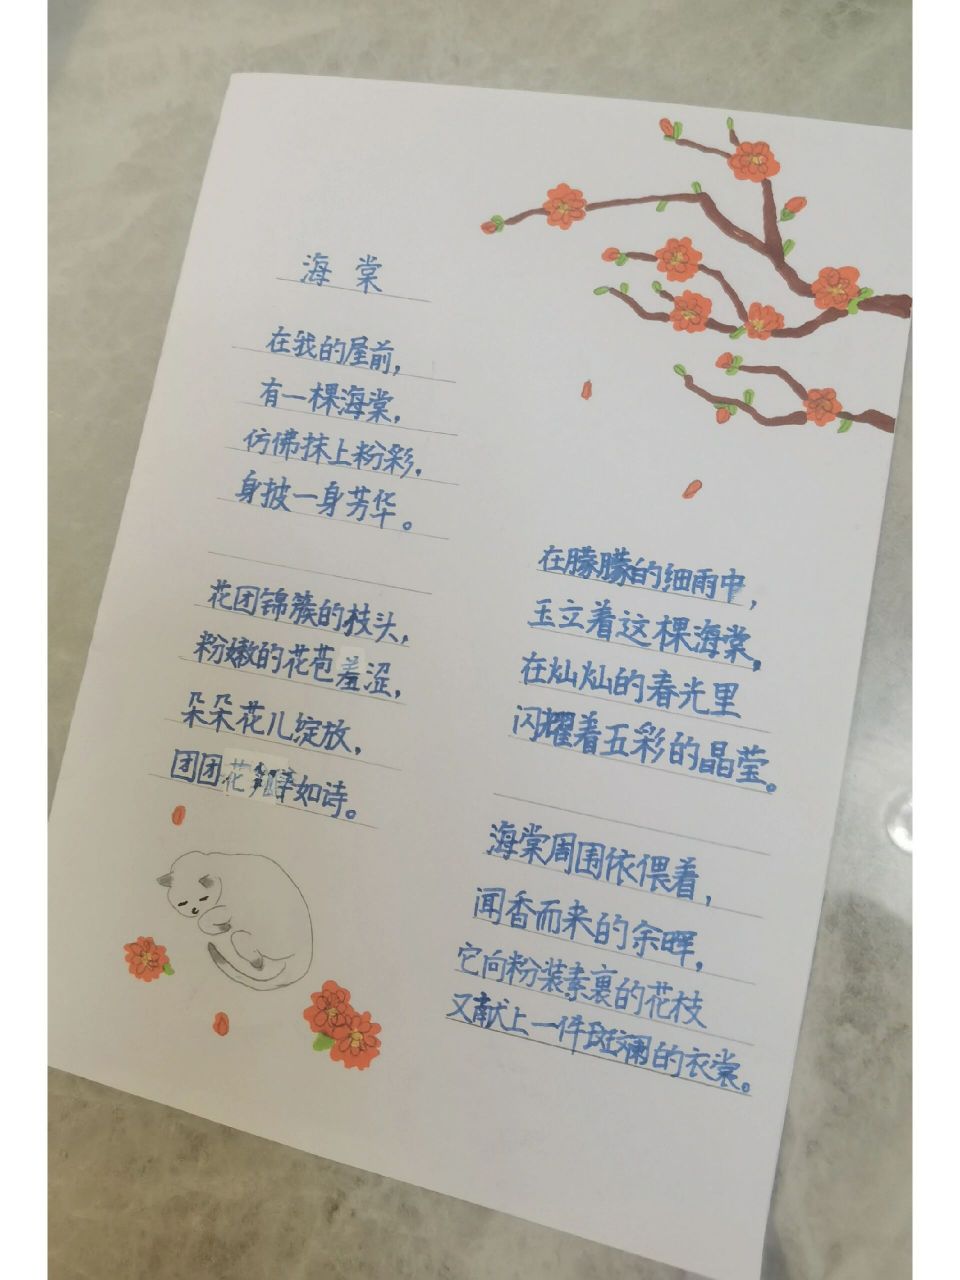 海棠
在我的屋前，
有一棵海棠，
仿佛抹上粉彩，
身披一身芳华。
花团锦簇的枝头，
粉嫩的花苞羞涩，
朵朵花儿绽放，
团团花如诗。
在朦朦的细雨中，
玉立着这棵海棠，
在灿灿的春光里
闪耀着五彩的晶莹。
海棠周围依偎着，
闻香而来的余晖，
它向粉装素裹的花枝
又献上一件斑斓的衣裳。